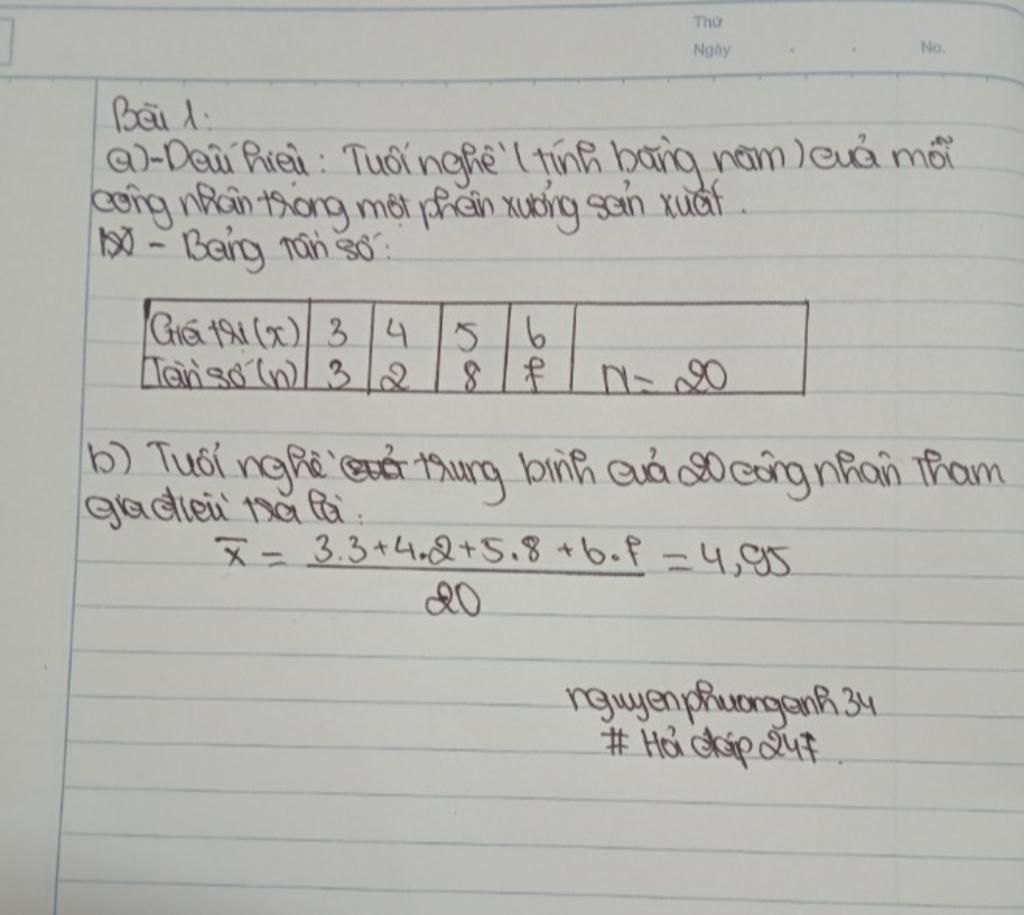 Thứ
Ngày . . No.
Bài 1:
a) - Dấu hiệu: Tuổi nghề (tính bằng năm) của mỗi
công nhân trong một phân xưởng sản xuất.
- Bảng tần số:
Giá trị (x) 3 4 5 6
Tần số (n) 3 2 8 7 N = 20
b) Tuổi nghề trung bình của 20 công nhân tham
gia điều tra là:
x̄ = 3.3+4.2+5.8+6.7 / 20 = 4,95
nguyenphuonganh34
# Hỏi đáp 247.